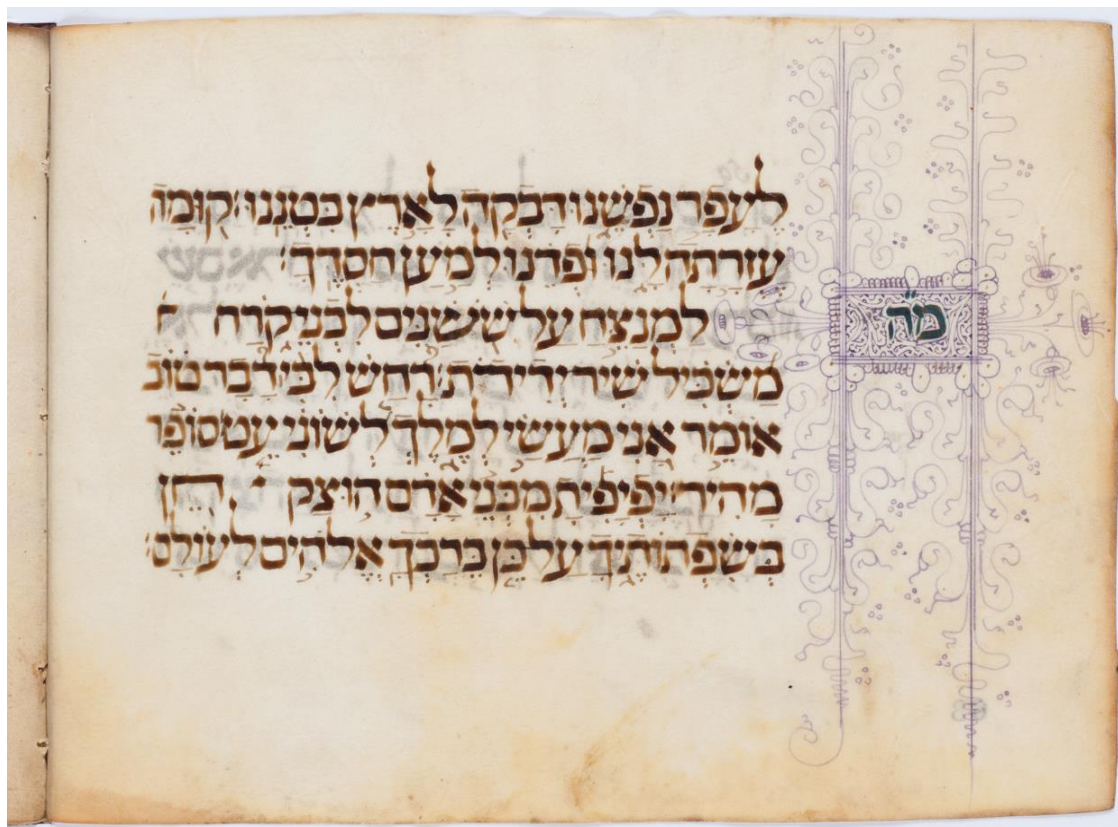 לֶעָפָר נַפְשֵׁנוּ דָּבְקָה לָאָרֶץ בִּטְנֵנוּ׃ קוּמָה
עֶזְרָתָה לָּנוּ וּפְדֵנוּ לְמַעַן חַסְדֶּךָ׃
מ״ה
לַמְנַצֵּחַ עַל שֹׁשַׁנִּים לִבְנֵי קֹרַח
מַשְׂכִּיל שִׁיר יְדִידֹת׃ רָחַשׁ לִבִּי דָּבָר טוֹב
אוֹמֵר אָנִי מַעֲשַׂי לְמֶלֶךְ לְשׁוֹנִי עֵט סוֹפֵר
מָהִיר׃ יָפְיָפִיתָ מִבְּנֵי אָדָם הוּצַק חֵן
בְּשִׂפְתוֹתֶיךָ עַל כֵּן בֵּרַכְךָ אֱלֹהִים לְעוֹלָם׃